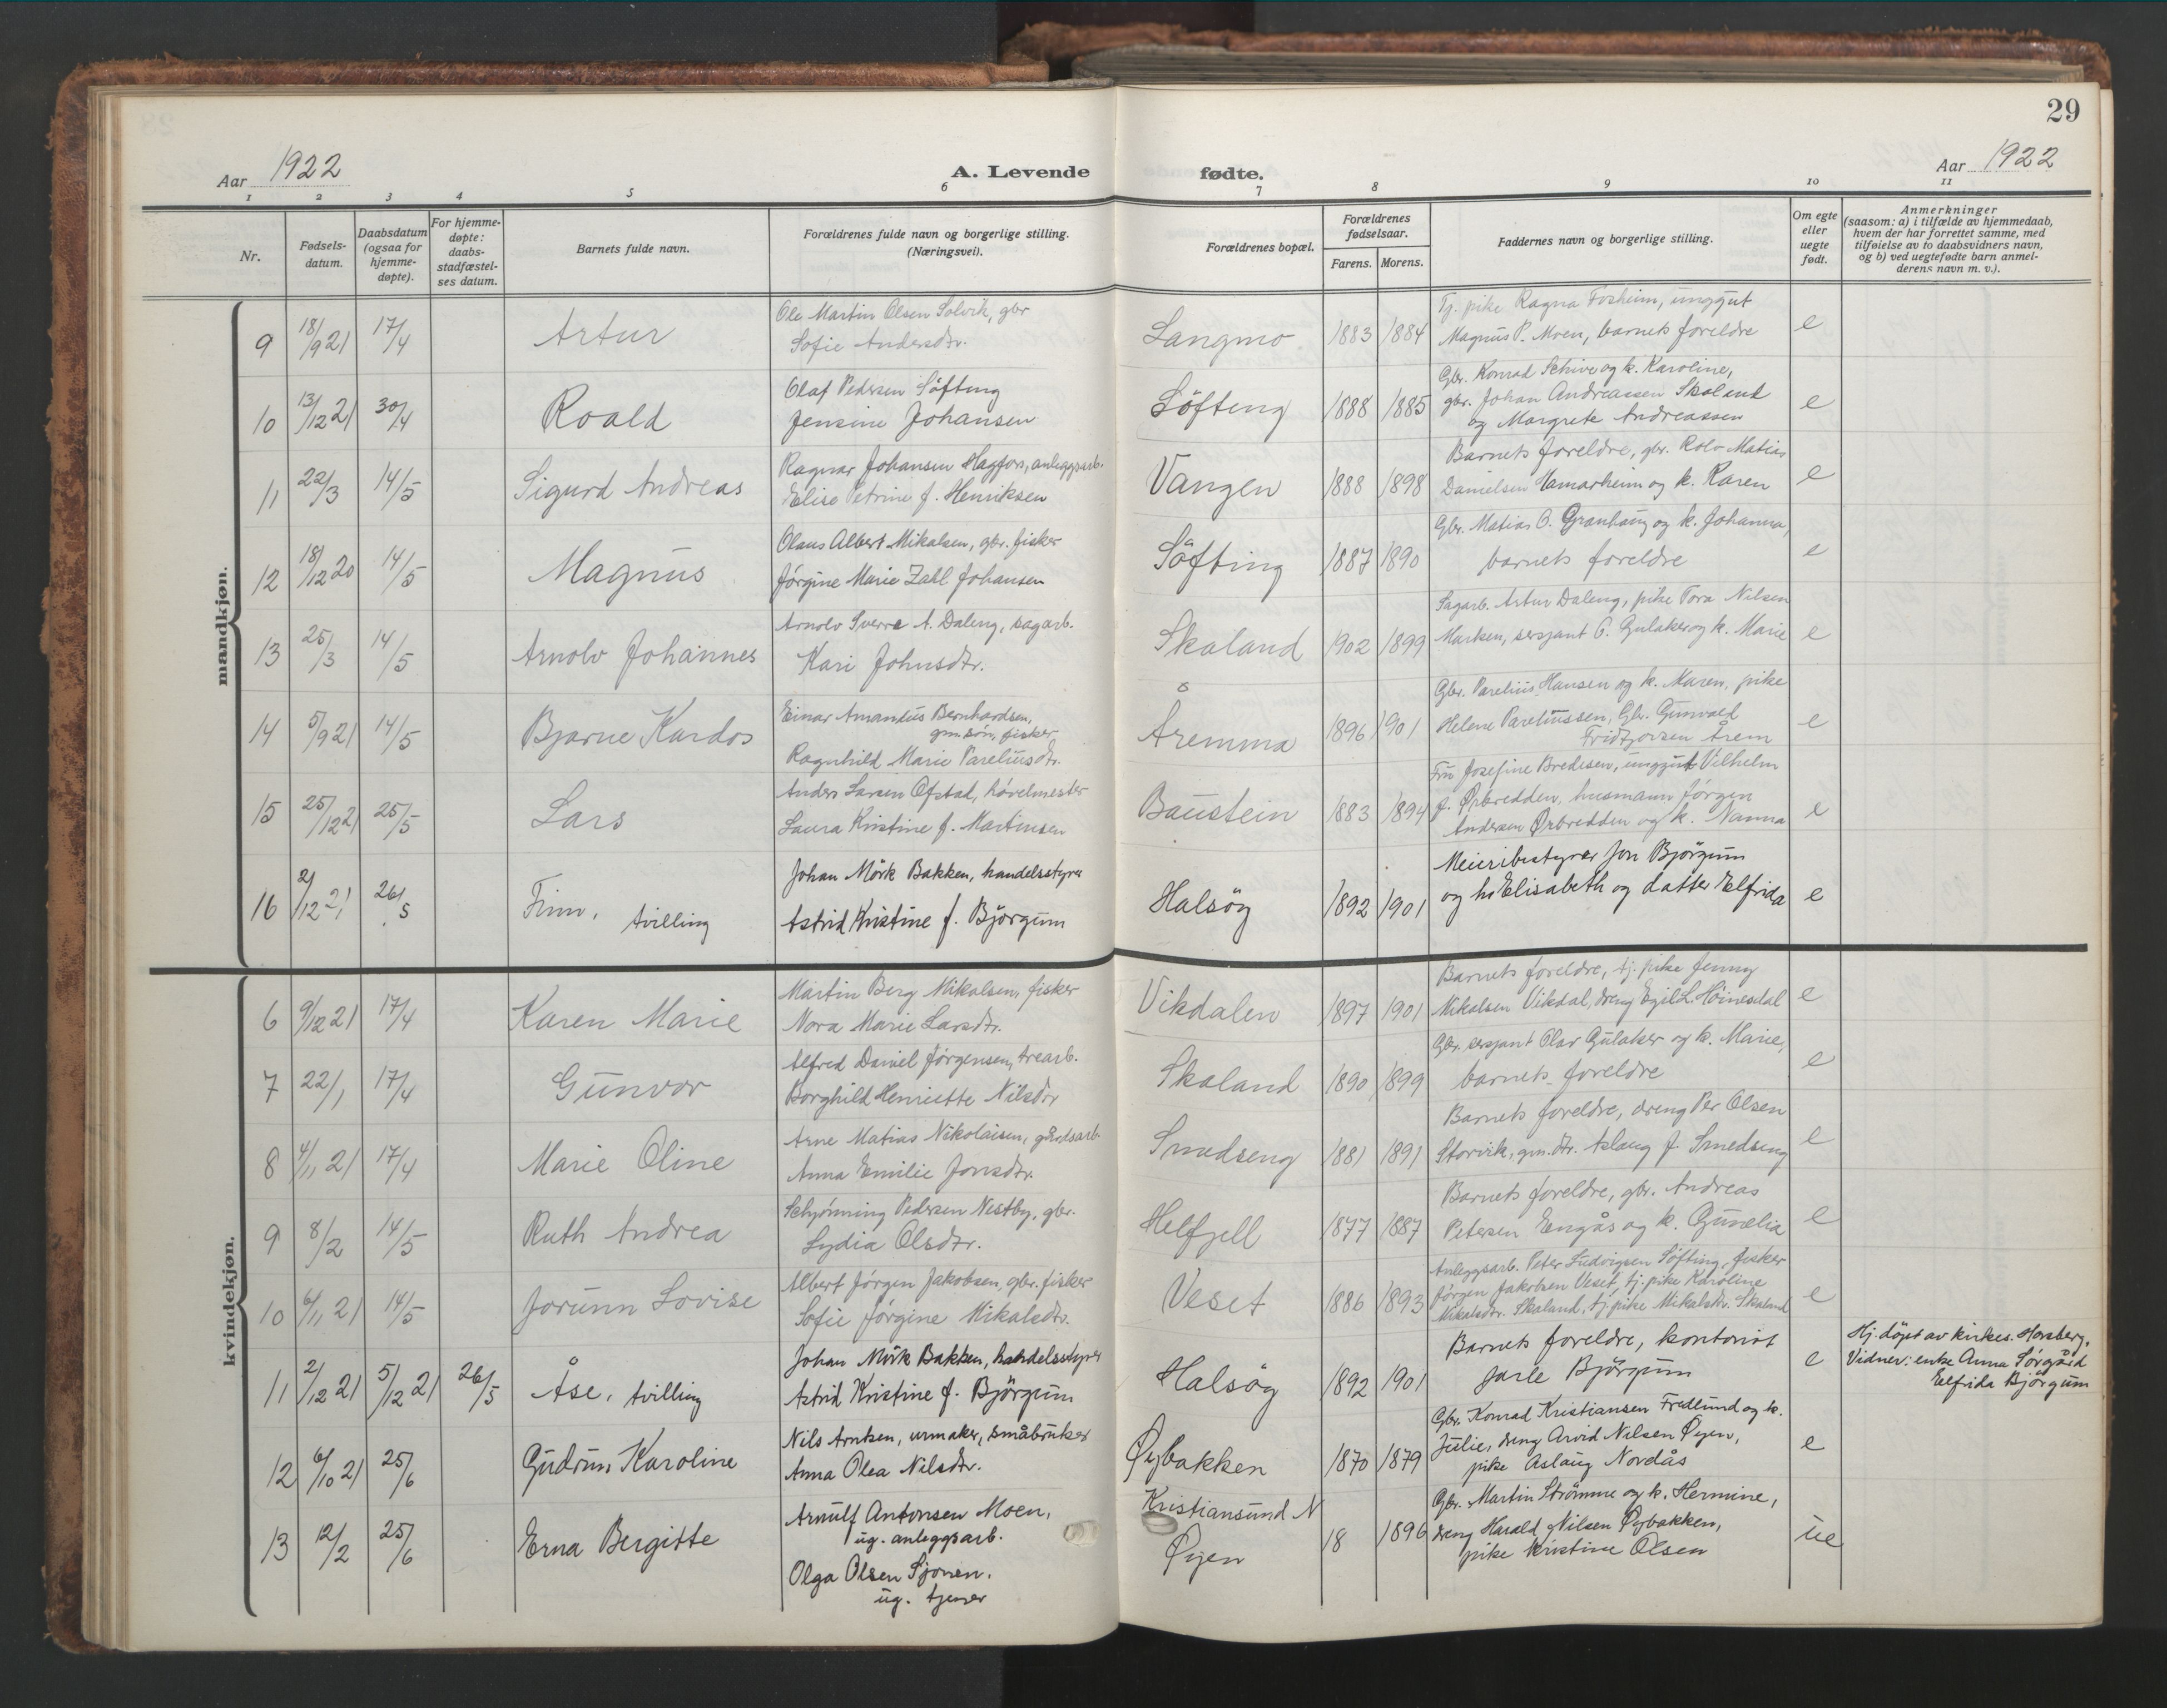 29
Aar 1922
A. Levende fødte.
Aar 1922
1 2 3 4 5 6 7 8 9 10 11
Nr.
Fødsels-
datum.
Daabsdatum
(ogsaa for
hjemme-
døpte).
For hjemme-
døpte:
daabs-
stadfæstel-
ses datum.
Barnets fulde navn.
Forældrenes fulde navn og borgerlige stilling.
(Næringsvei).
Forældrenes bopæl.
Forældrenes
fødselsaar.
Farens. Morens.
Faddernes navn og borgerlige stilling.
Om egte
eller
uegte
født.
Anmerkninger
(saasom: a) i tilfælde av hjemmedaab,
hvem der har forrettet samme, med
tilføielse av to daabsvidners navn,
og b) ved uegtefødte barn anmel-
derens navn m. v.).
mandkjøn.
9 18/9 21 17/4 Artur
Ole Martin Olsen Solvik, gbr
Sofie Andersdtr.
Langmo 1883 1884
Tj. pike Ragna Forheim, unggut
Magnus P. Moen, barnets foreldre
e
10 13/12 21 30/4 Roald
Olaf Pedersen Söfteng
Jensine Johansen
Söfteng 1888 1885
Gbr. Konrad Schive og k. Karoline,
gbr. Johan Andreassen Skaland
og Margrete Andreassen
e
11 22/3 14/5 Sigurd Andreas
Ragnar Johansen Hagfors, anleggsarb.
Elise Petrine f. Henriksen
Vangen 1888 1898
Barnets foreldre, gbr. Rolv Matias
Danielsen Hamarheim og k. Karen
e
12 18/12 20 14/5 Magnus
Olaus Albert Mikalsen, gbr. fisker
Jörgine Marie Zahl Johansen
Söfting 1887 1890
Gbr. Matias O. Granhaug og k. Johanna,
barnets foreldre
e
13 25/3 14/5 Arnolv Johannes
Arnolv Sverre A. Daleng, sagarb.
Kari Johnsdtr.
Skaland 1902 1899
Sagarb. Artur Daleng, pike Tora Nilsen
Marken, sersjant O. Gulaker og k. Marie
e
14 5/9 21 14/5 Bjarne Kardos
Einar Amandus Bernhardsen,
gm.sön, fisker
Ragnhild Marie Pareliusdtr.
Åremma 1896 1901
Gbr. Parelius Hansen og k. Maren, pike
Helene Pareliussen, Gbr. Gunvald
Fridtjorsen Årem
e
15 25/12 21 25/5 Lars
Anders Larsen Ofstad, hövelmester
Laura Kristine f. Martinsen
Baustein 1883 1894
Fru Josefine Bredesen, unggut Vilhelm
J. Ørbredden, husmann Jörgen
Andersen Ørbredden og k. Nanna
e
16 2/12 21 26/5 Finn, tvilling
Johan Mörk Bakken, handelsstyrer
Astrid Kristine f. Björgum
Halsöy 1892 1901
Meieribestyrer Jon Björgum
og hu Elisabeth og datter Elfrida
e
kvindekjøn.
6 9/12 21 17/4 Karen Marie
Martin Berg Mikalsen, fisker
Nora Marie Larsdtr.
Vikdalen 1897 1901
Barnets foreldre, tj. pike Jenny
Mikalsen Vikdal, dreng Egil L. Höinesdal
e
7 22/1 17/4 Gunvor
Alfred Daniel Jörgensen, trearb.
Borghild Henriette Nilsdtr
Skaland 1890 1899
Gbr. sersjant Olav Gulaker og k. Marie,
barnets foreldre
e
8 4/11 21 17/4 Marie Oline
Arne Matias Nikolaisen, gårdsarb
Anna Emilie Jonsdtr.
Smedseng 1881 1891
Barnets foreldre, dreng Per Olsen
Storvik, gm.dtr. Aslaug J. Smedseng
e
9 8/2 14/5 Ruth Andrea
Schjönning Pedersen Nestby, gbr.
Lydia Olsdtr.
Helfjell 1877 1887
Barnets foreldre, gbr. Andreas
Petersen Engås og k. Gunelia
e
10 6/11 21 14/5 Jorunn Lovise
Albert Jörgen Jakobsen, gbr. fisker
Sofie Jörgine Mikalsdtr.
Veset 1886 1893
Anleggsarb. Peter Ludvigsen Söfting, fisker
Jörgen Jakobsen Veset, tj. pike Karoline
Mikalsdtr. Skaland, tj. pike Mikalsdtr. Skaland
e
11 2/12 21 5/12 21 26/5 Åse, tvilling
Johan Mörk Bakken, handelsstyrer
Astrid Kristine f. Björgum
Halsöy 1892 1901
Barnets foreldre, kontorist
Jarle Björgum
e
Hj. döpt av kirkes. Horsberg.
Vidner: enke Anna Sörgård
Elfrida Björgum
12 6/10 21 25/6 Gudrun Karoline
Nils Arntsen, urmaker, småbruker
Anna Olea Nilsdtr.
Øybakken 1870 1879
Gbr. Konrad Kristiansen Fredlund og k.
Julie, dreng Arvid Nilsen Øyen,
pike Aslaug Nordås
e
13 12/2 25/6 Erna Bergitte
Arnulf Antonsen Moen,
ug. anleggsarb.
Olga Olsen Sjonen.
ug. tjener
Kristiansund N
Øyen
18 1896
Gbr. Martin Strömme og k. Hermine,
dreng Harald Nilsen Øybakken,
pike Kristine Olsen
ue